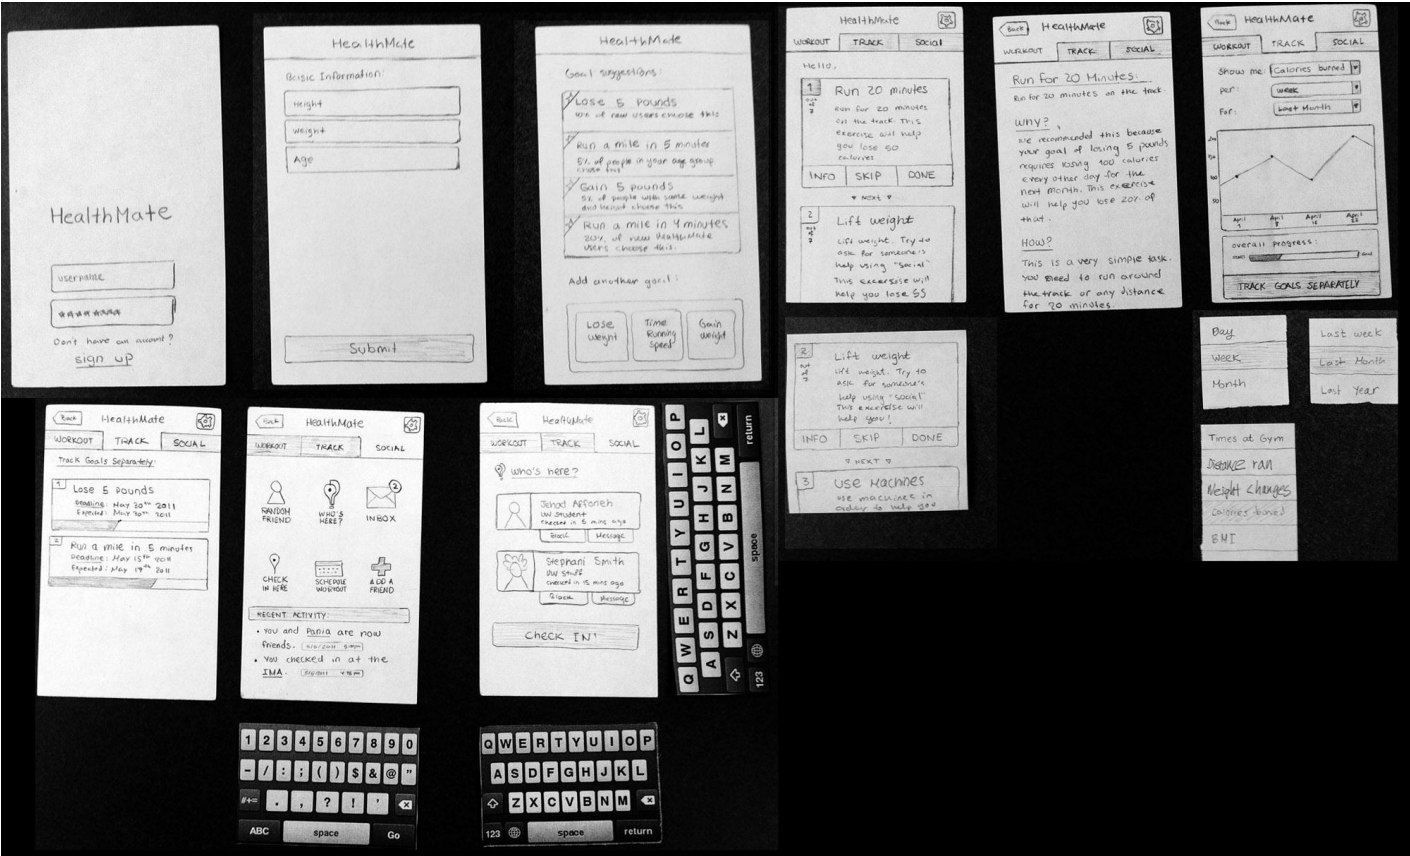 HealthMate
username
********
Don't have an account?
sign up
HealthMate
Basic Information:
Height
weight
Age
Submit
HealthMate
Goal suggestions:
Lose 5 Pounds
10% of new users choose this
Run a mile in 5 minutes
5% of people in your age group
chose this
Gain 5 pounds
5% of people with same weight
and height choose this
Run a mile in 4 minutes
20% of new HealthMate
users choose this.
Add another goal:
Lose
weight
Time
Running
speed
Gain
weight
HealthMate
WORKOUT
TRACK
Social
Hello,
1
Run 20 minutes
Run for 20 minutes
on the track. This
exercise will help
you lose 50
calories
INFO
SKIP
DONE
NEXT
2
Lift weight
Lift weight. Try to
ask for someone's
help using "social"
This excersise will
help you lose 55
Back
HealthMate
WORKOUT
TRACK
SOCIAL
Run for 20 Minutes:
Run for 20 minutes on the track.
WHY?
We recommended this because
your goal of losing 5 pounds
requires losing 100 calories
every other day for the
next month. This exercise
will help you lose 20% of
that.
HOW?
This is a very simple task.
you need to run around
the track or any distance
for 20 minutes.
Back
HealthMate
WORKOUT
TRACK
SOCIAL
Show me:
Calories burned
per:
week
For:
Last Month
April
April
April
April
overall progress:
TRACK GOALS SEPARATELY
2
Lift weight
Lift weight. Try to
ask for someone's
help using "social"
This excersise will
help you!
INFO
SKIP
DONE
NEXT
3
Use Machines
use machines in
order to help you
Day
Week
Month
Last week
Last Month
Last Year
Times at Gym
Distance ran
Weight changes
Calories burned
BMI
Back
HealthMate
WORKOUT
TRACK
SOCIAL
Track Goals Separately:
1
Lose 5 Pounds
Deadline: May 20th 2011
Expected: May 20th 2011
2
Run a mile in 5 minutes
Deadline: May 15th 2011
Expected: May 19th 2011
Back
HealthMate
WORKOUT
TRACK
SOCIAL
RANDOM
FRIEND
WHO'S
HERE?
2
INBOX
CHECK
IN HERE
SCHEDULE
WORKOUT
ADD A
FRIEND
RECENT ACTIVITY:
• You and Pania are now
friends.
• You checked in at the
IMA.
Back
HealthMate
WORKOUT
TRACK
SOCIAL
Who's here?
Jehad Affoneh
UW Student
checked in 5 mins ago
Block
Message
Stephani Smith
UW Staff
checked in 15 mins ago
Block
Message
CHECK IN!
Q W E R T Y U I O P
A S D F G H J K L
Z X C V B N M
123
space
return
1 2 3 4 5 6 7 8 9 0
- / : ; ( ) $ & @ "
#+= . , ? ! '
ABC
space
Go
Q W E R T Y U I O P
A S D F G H J K L
Z X C V B N M
123
space
return